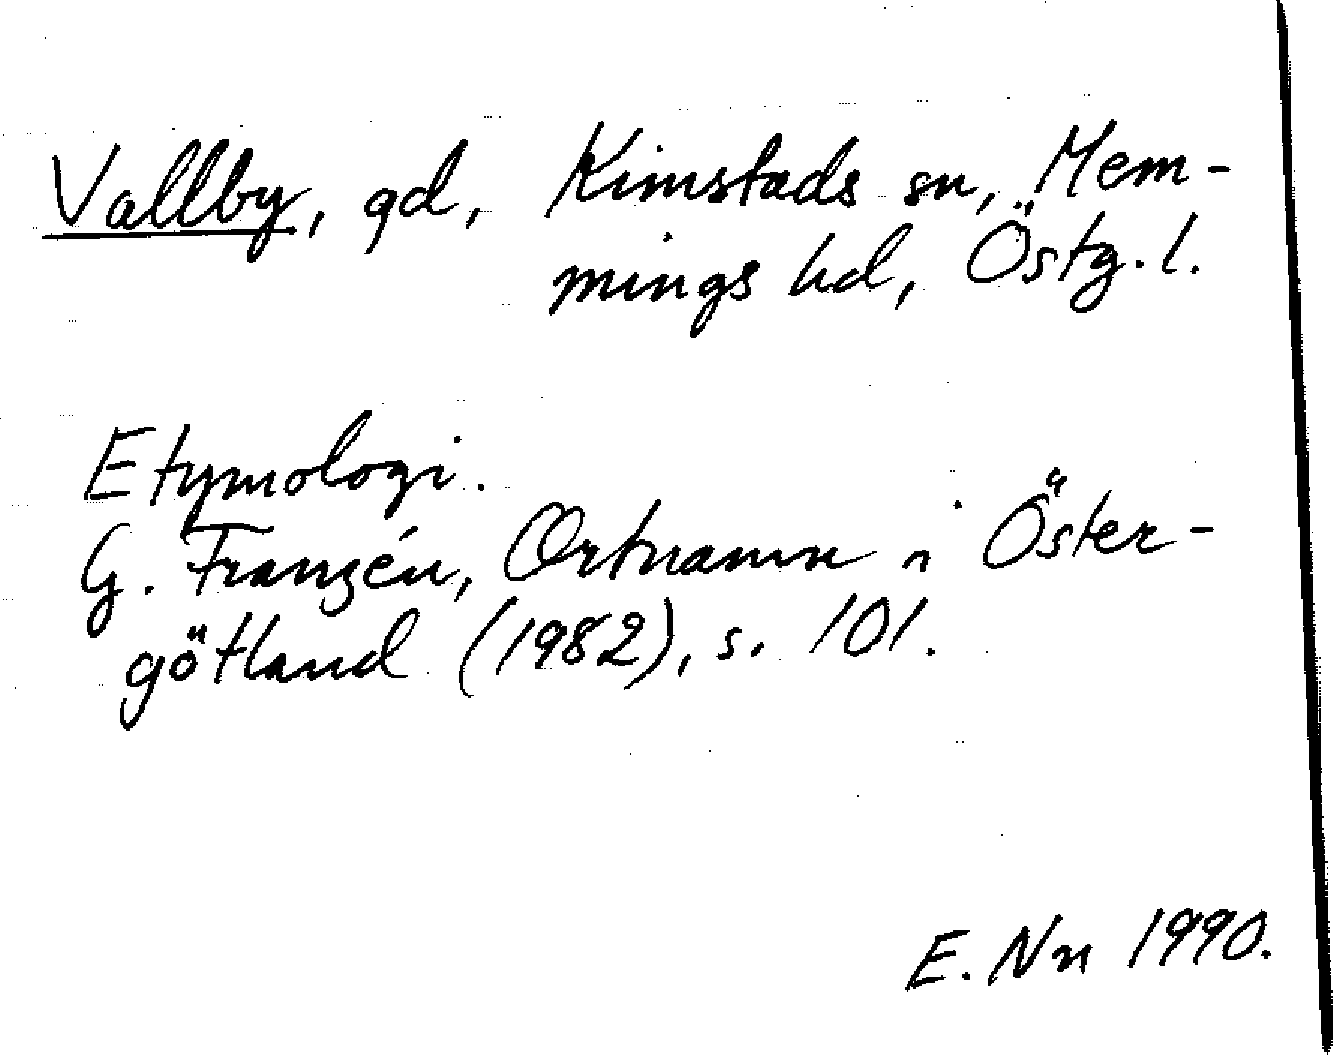 Vallby, gd, Kimstads sn, Mem-
mings hd, Östg. l.
Etymologi.
G. Franzén, Ortnamn i Öster-
götland (1982), s. 101.
E. Nn 1990.